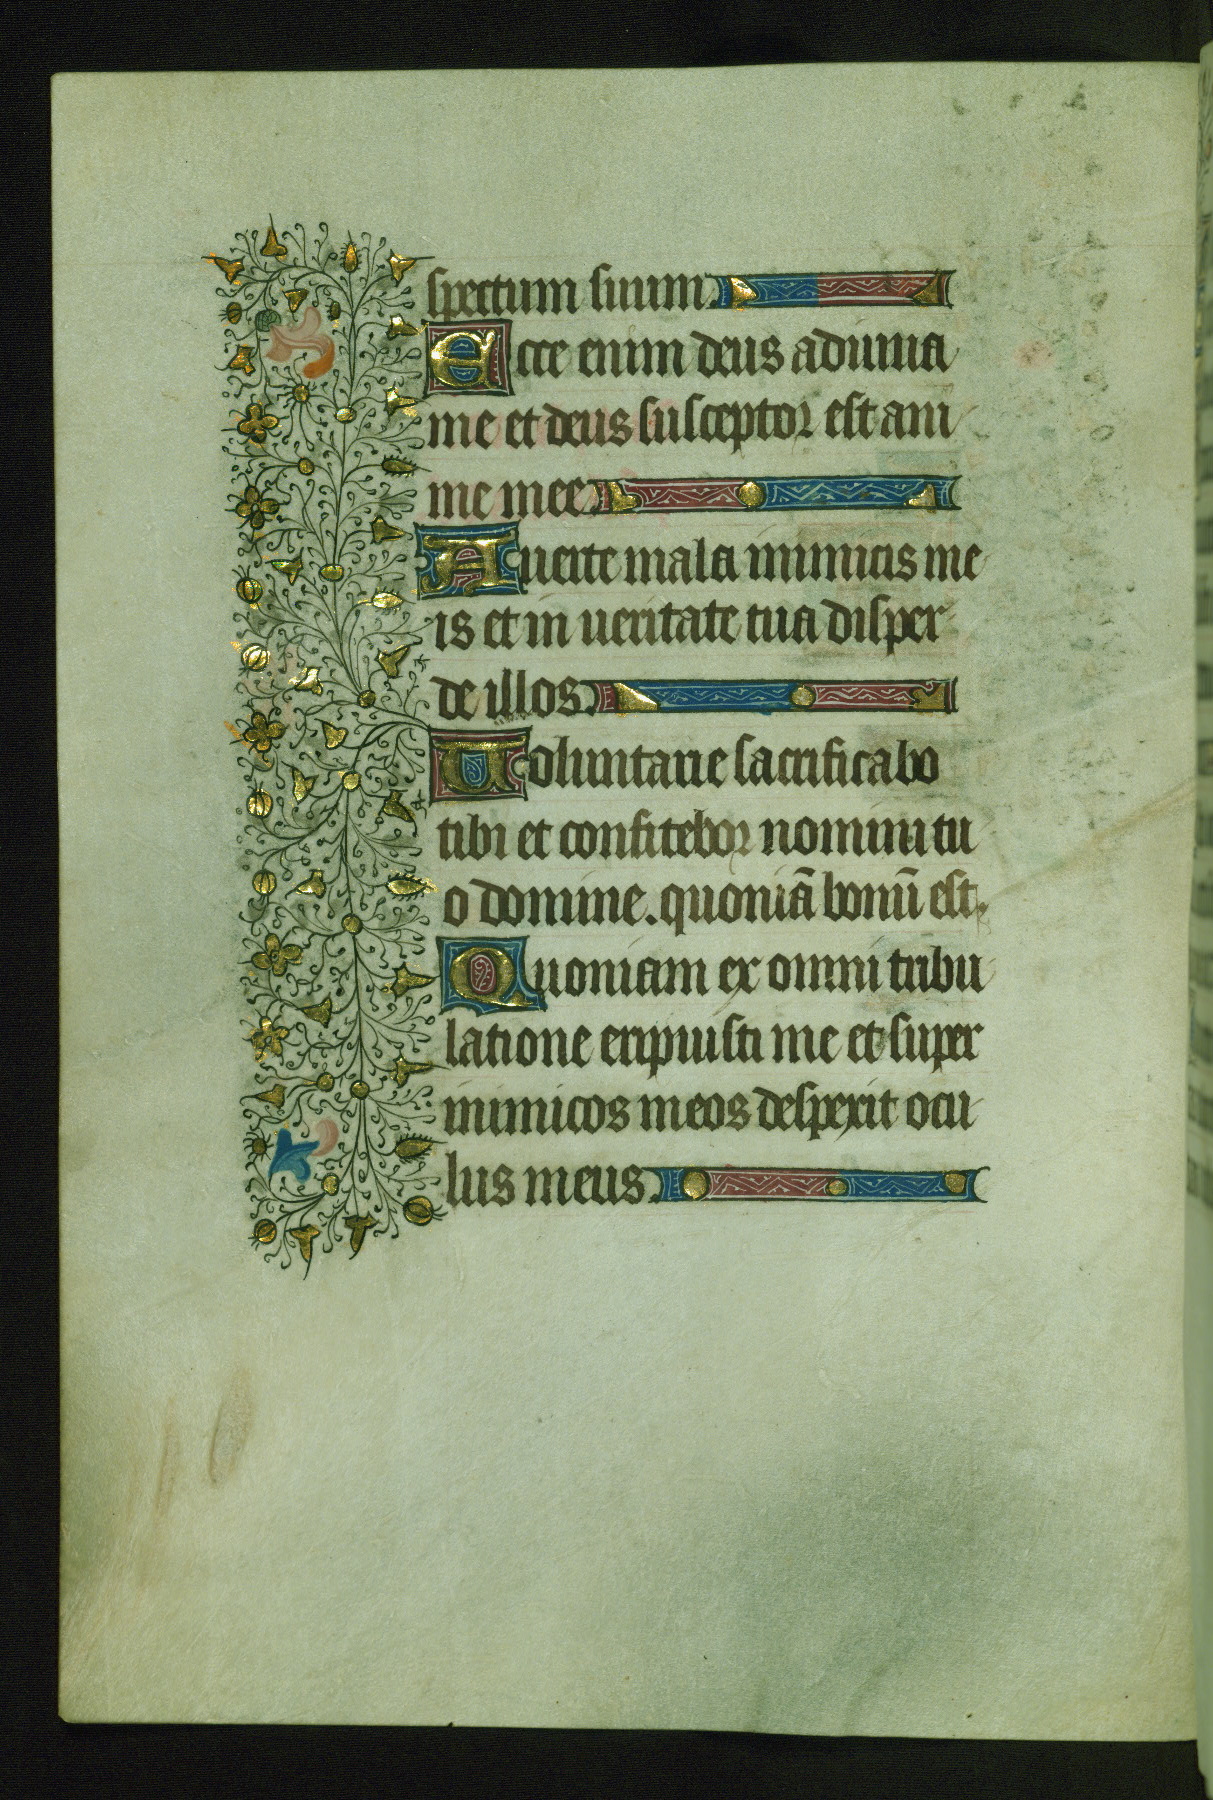 spectum suum.
Ecce enim deus adiuua
me et deus susceptor est ani
me mee.
Auerte mala inimicis me
is et in ueritate tua disper
de illos.
Uoluntarie sacrificabo
tibi et confitebor nomini tu
o domine. quoniā bonū est.
Quoniam ex omni tribu
latione eripuisti me et super
inimicos meos despexit ocu
lus meus.